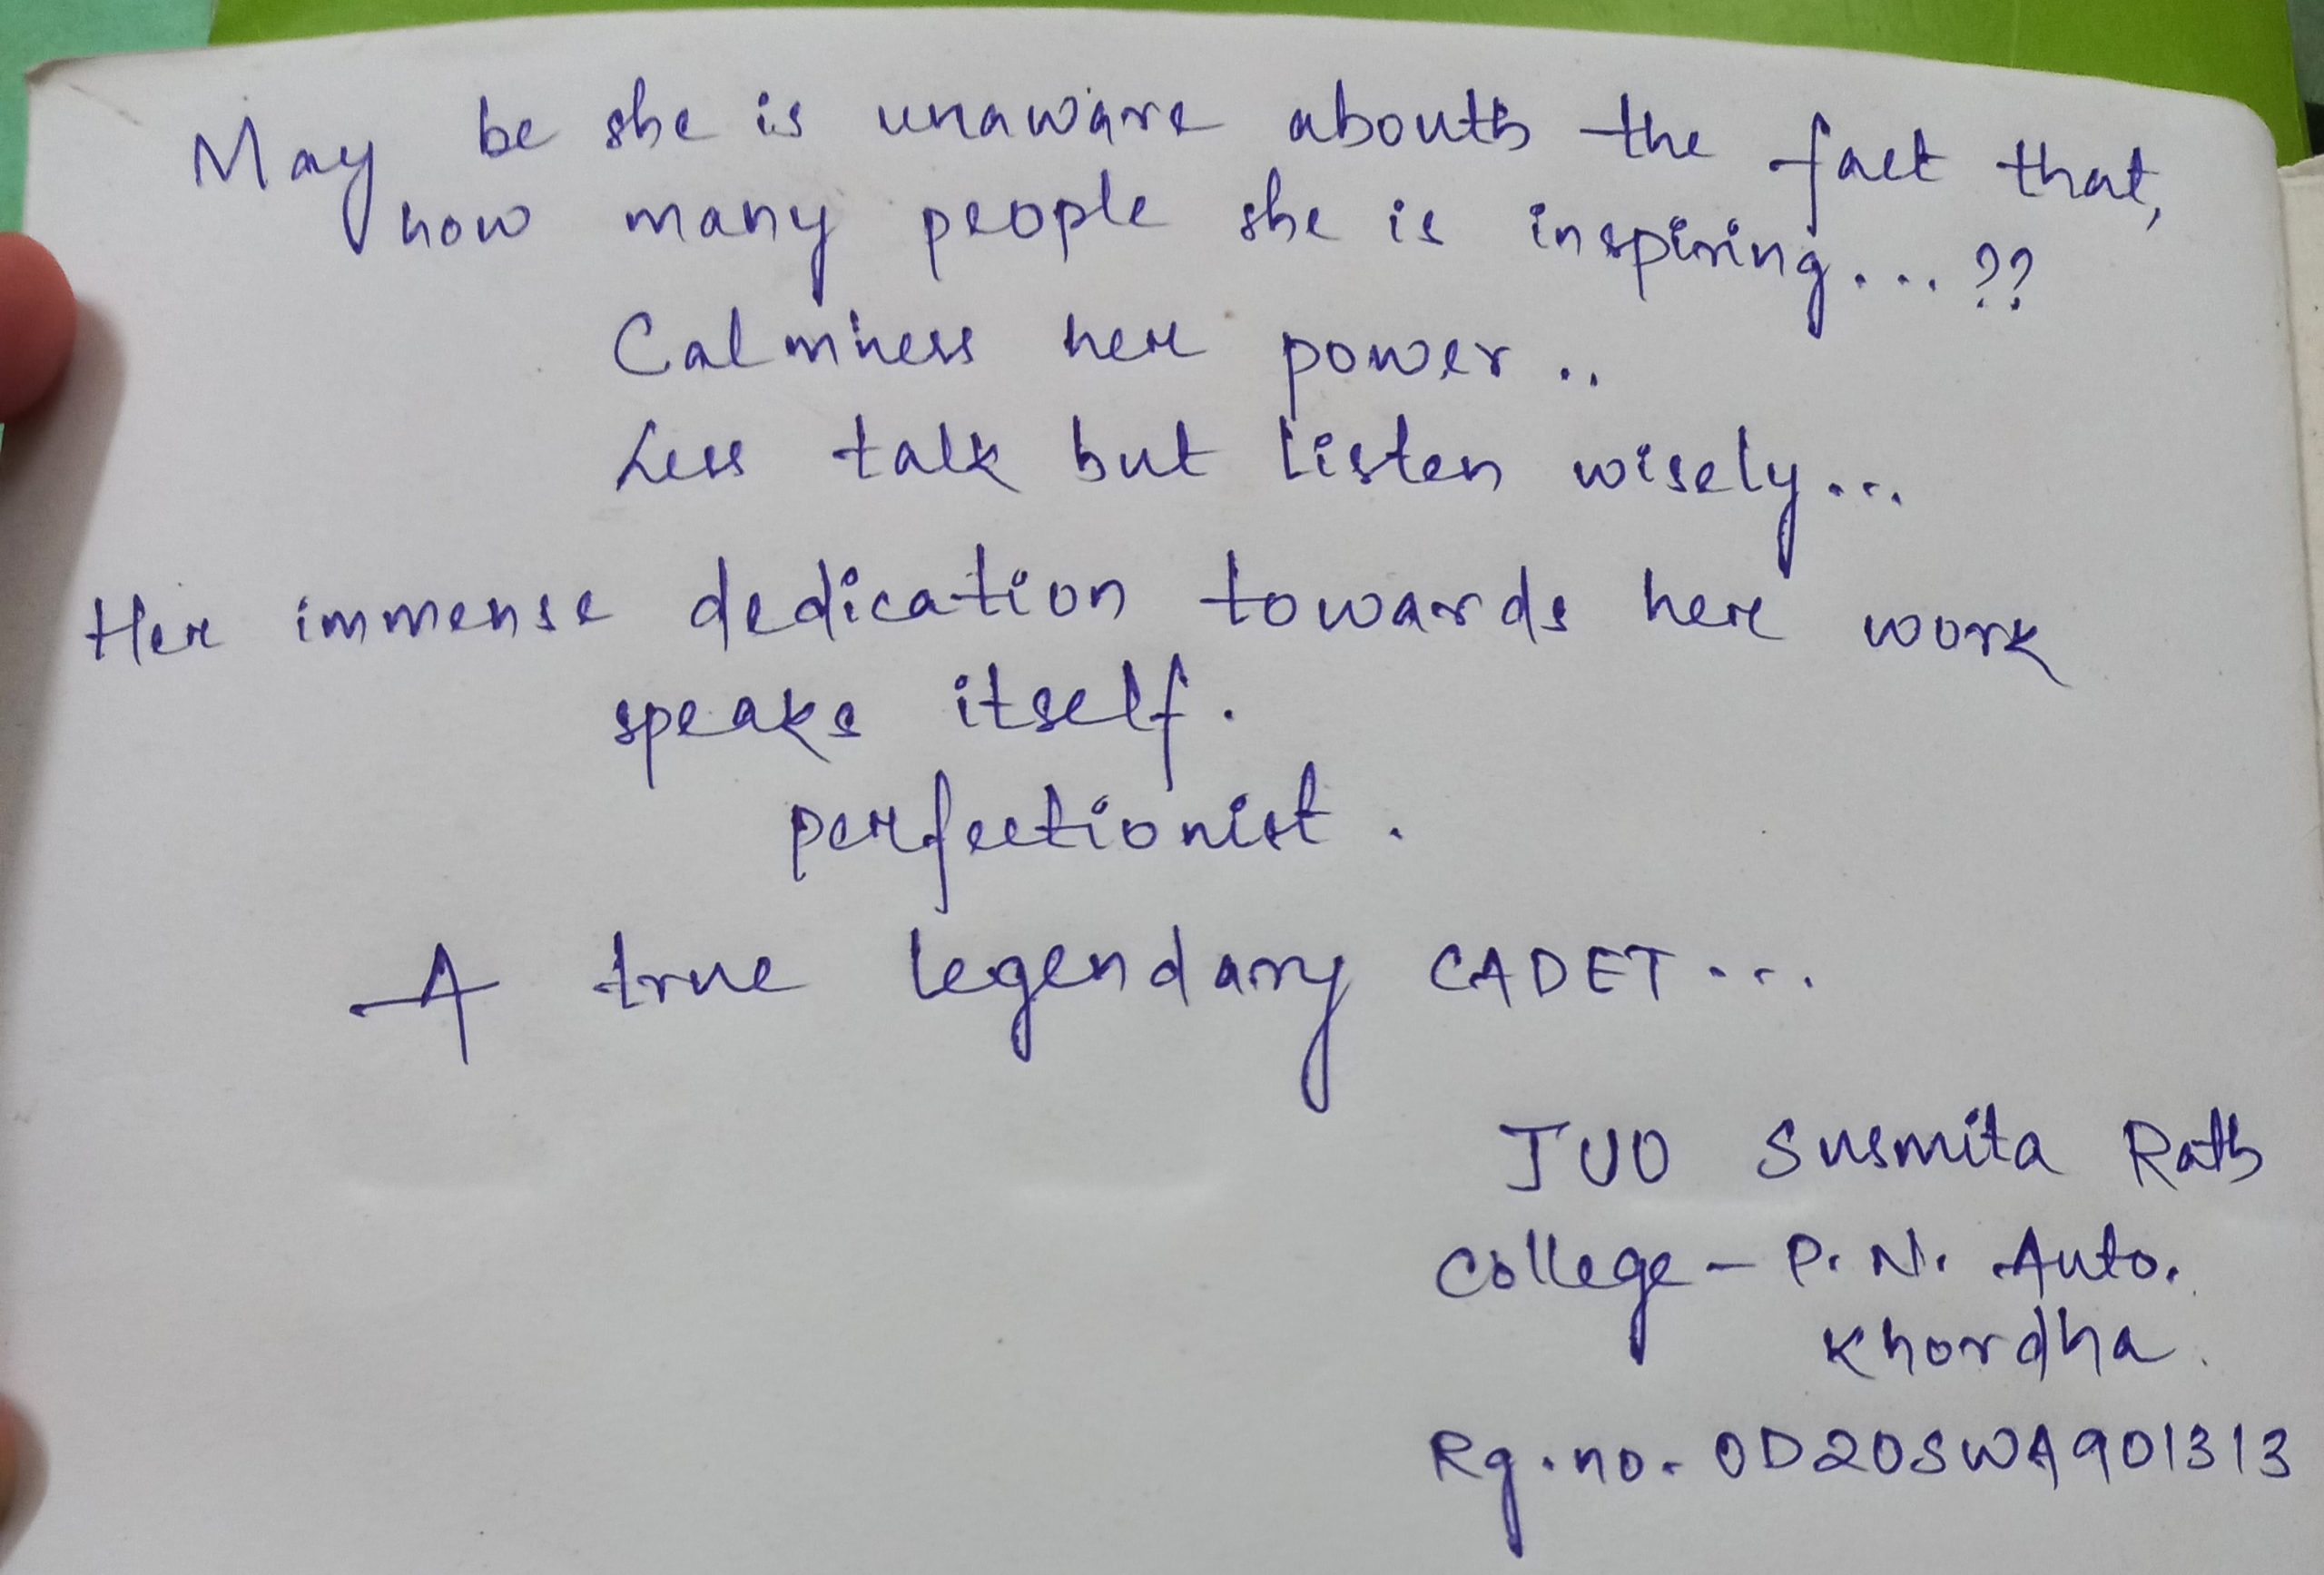 May be she is unaware abouth the fact that,
how many people she is inspiring... ??
Calmness her power..
Less talk but listen wisely...
Her immense dedication towards her work
speaks itself.
perfectionist.
A true legendary CADET...
JUO Susmita Rath
College - P. N. Auto.
Khordha.
Rg. no. OD20SWA901313